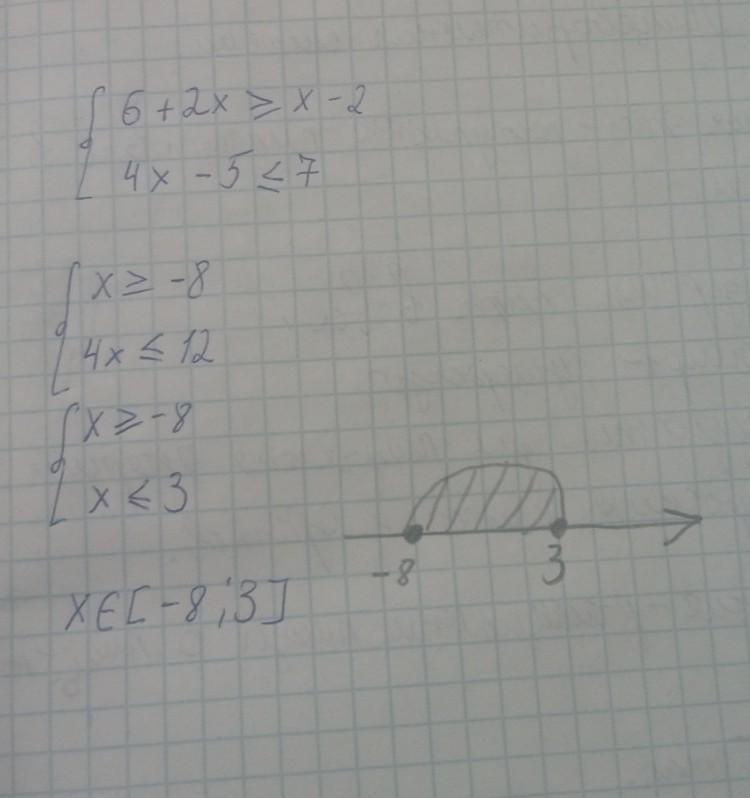 6 + 2x ≥ x - 2
4x - 5 ≤ 7
x ≥ -8
4x ≤ 12
x ≥ -8
x ≤ 3
-8 3
x ∈ [-8; 3]